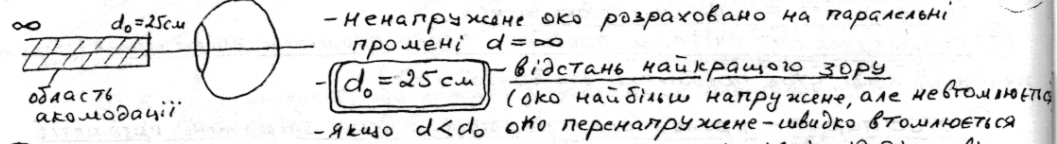 ∞ d₀=25см
область
акомодації
- ненапружене око розраховано на паралельні
промені d=∞
- d₀ = 25 см - відстань найкращого зору
(око найбільш напружене, але не втомлюється
- якщо d<d₀ око перенапружене - швидко втомлюється